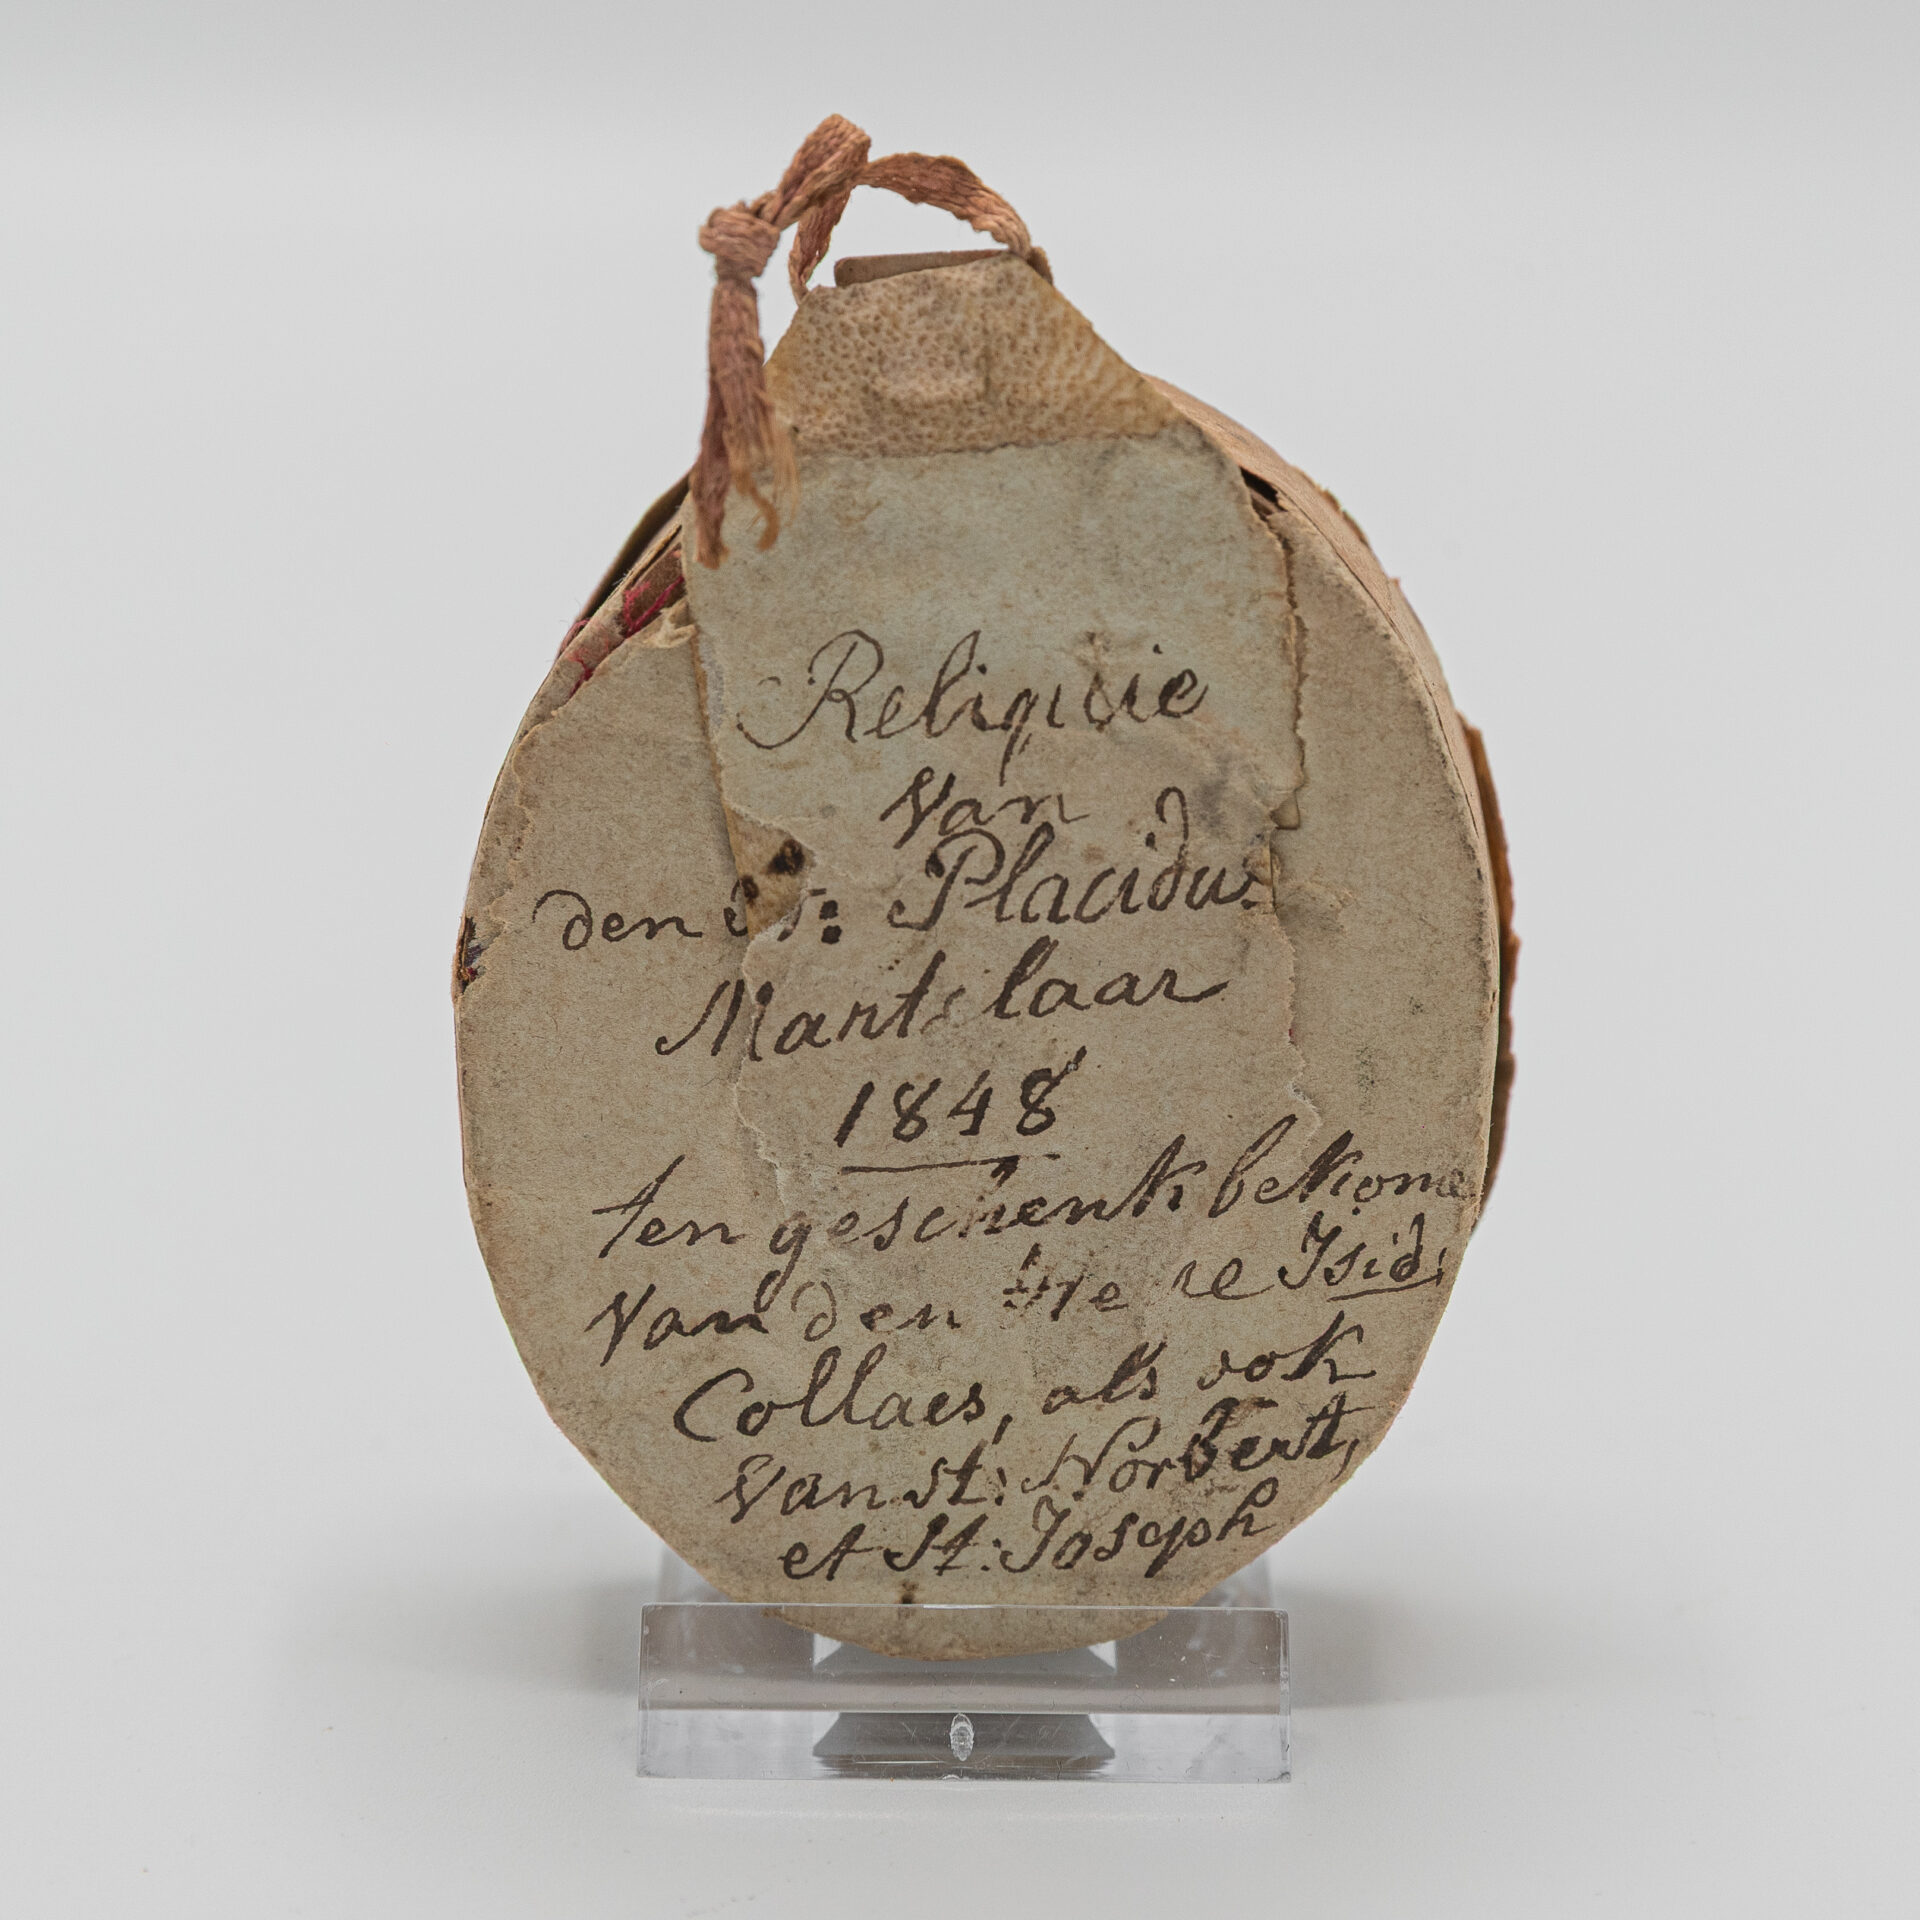 Reliquie
Van
den St: Placidus
Martelaar
1848
ten geschenk bekome
Van den Heere Isid:
Collaes, als ook
Van st: Norbert,
et St: Joseph